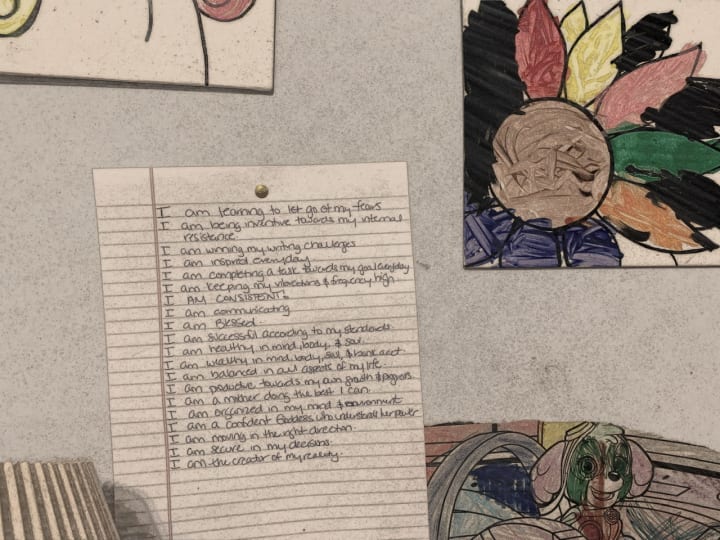 I am learning to let go of my fears
I am being inventive towards my internal
resistance.
I am winning my writing challenges
I am inspired everyday
I am completing a task towards my goal everyday
I am keeping my vibrations & frequency high.
I AM CONSISTENT!
I am communicating
I am Blessed.
I am successful according to my standards.
I am healthy in mind, body, & soul.
I am wealthy in mind, body, soul, & bank acct
I am balanced in all aspects of my life.
I am productive towards my own growth & progress.
I am a mother doing the best I can.
I am organized in my mind & environment
I am a confident Goddess who understands her power
I am moving in the right direction.
I am secure in my decisions.
I am the creator of my reality.